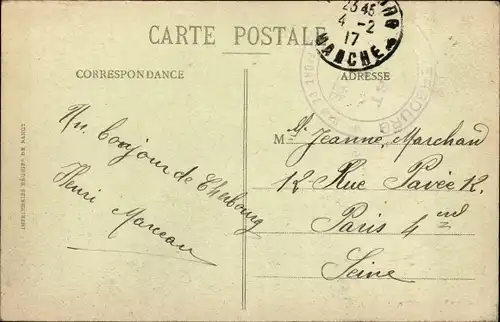 CARTE POSTALE
23 45
4 - 2
17
MANCHE
CORRESPONDANCE
ADRESSE
Un bonjour de Cherbourg
Henri
Marceau
Jeanne Marchau
12 Rue Pavée 12.
Paris 4
Seine
IMPRIMERIES RÉUNIES DE NANCY